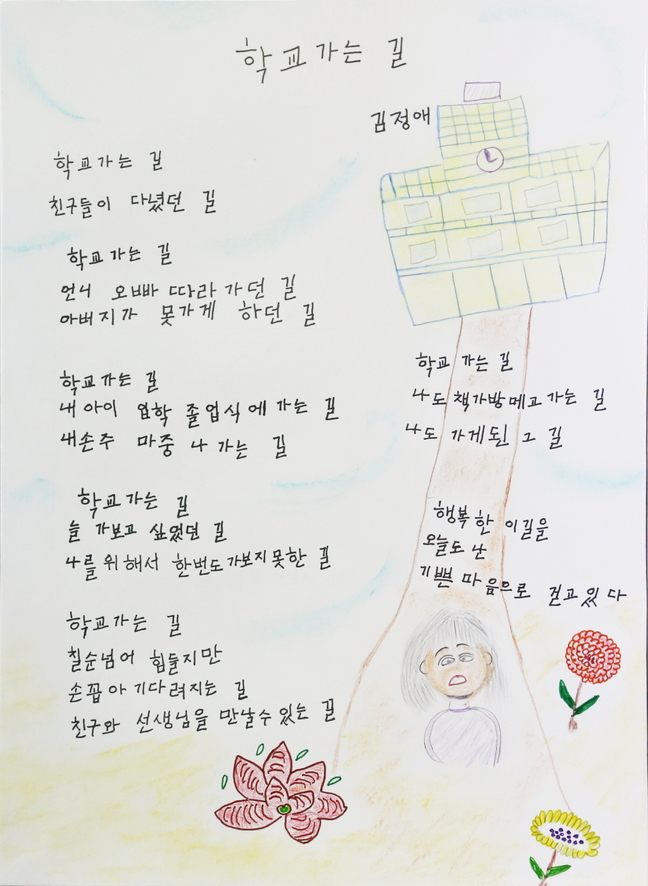 학교가는 길
김정애
학교가는 길
친구들이 다녔던 길
학교가는 길
언니 오빠 따라 가던 길
아버지가 못가게 하던 길
학교가는 길
내 아이 입학 졸업식에 가는 길
내손주 마중 나 가는 길
학교가는 길
늘 가보고 싶었던 길
나를 위해서 한번도 가보지 못한 길
학교가는 길
칠순넘어 힘들지만
손꼽아 기다려지는 길
친구와 선생님을 만날수 있는 길
학교 가는 길
나도 책가방메고 가는 길
나도 가게된 그 길
행복한 이길을
오늘도 난
기쁜 마음으로 걷고 있다